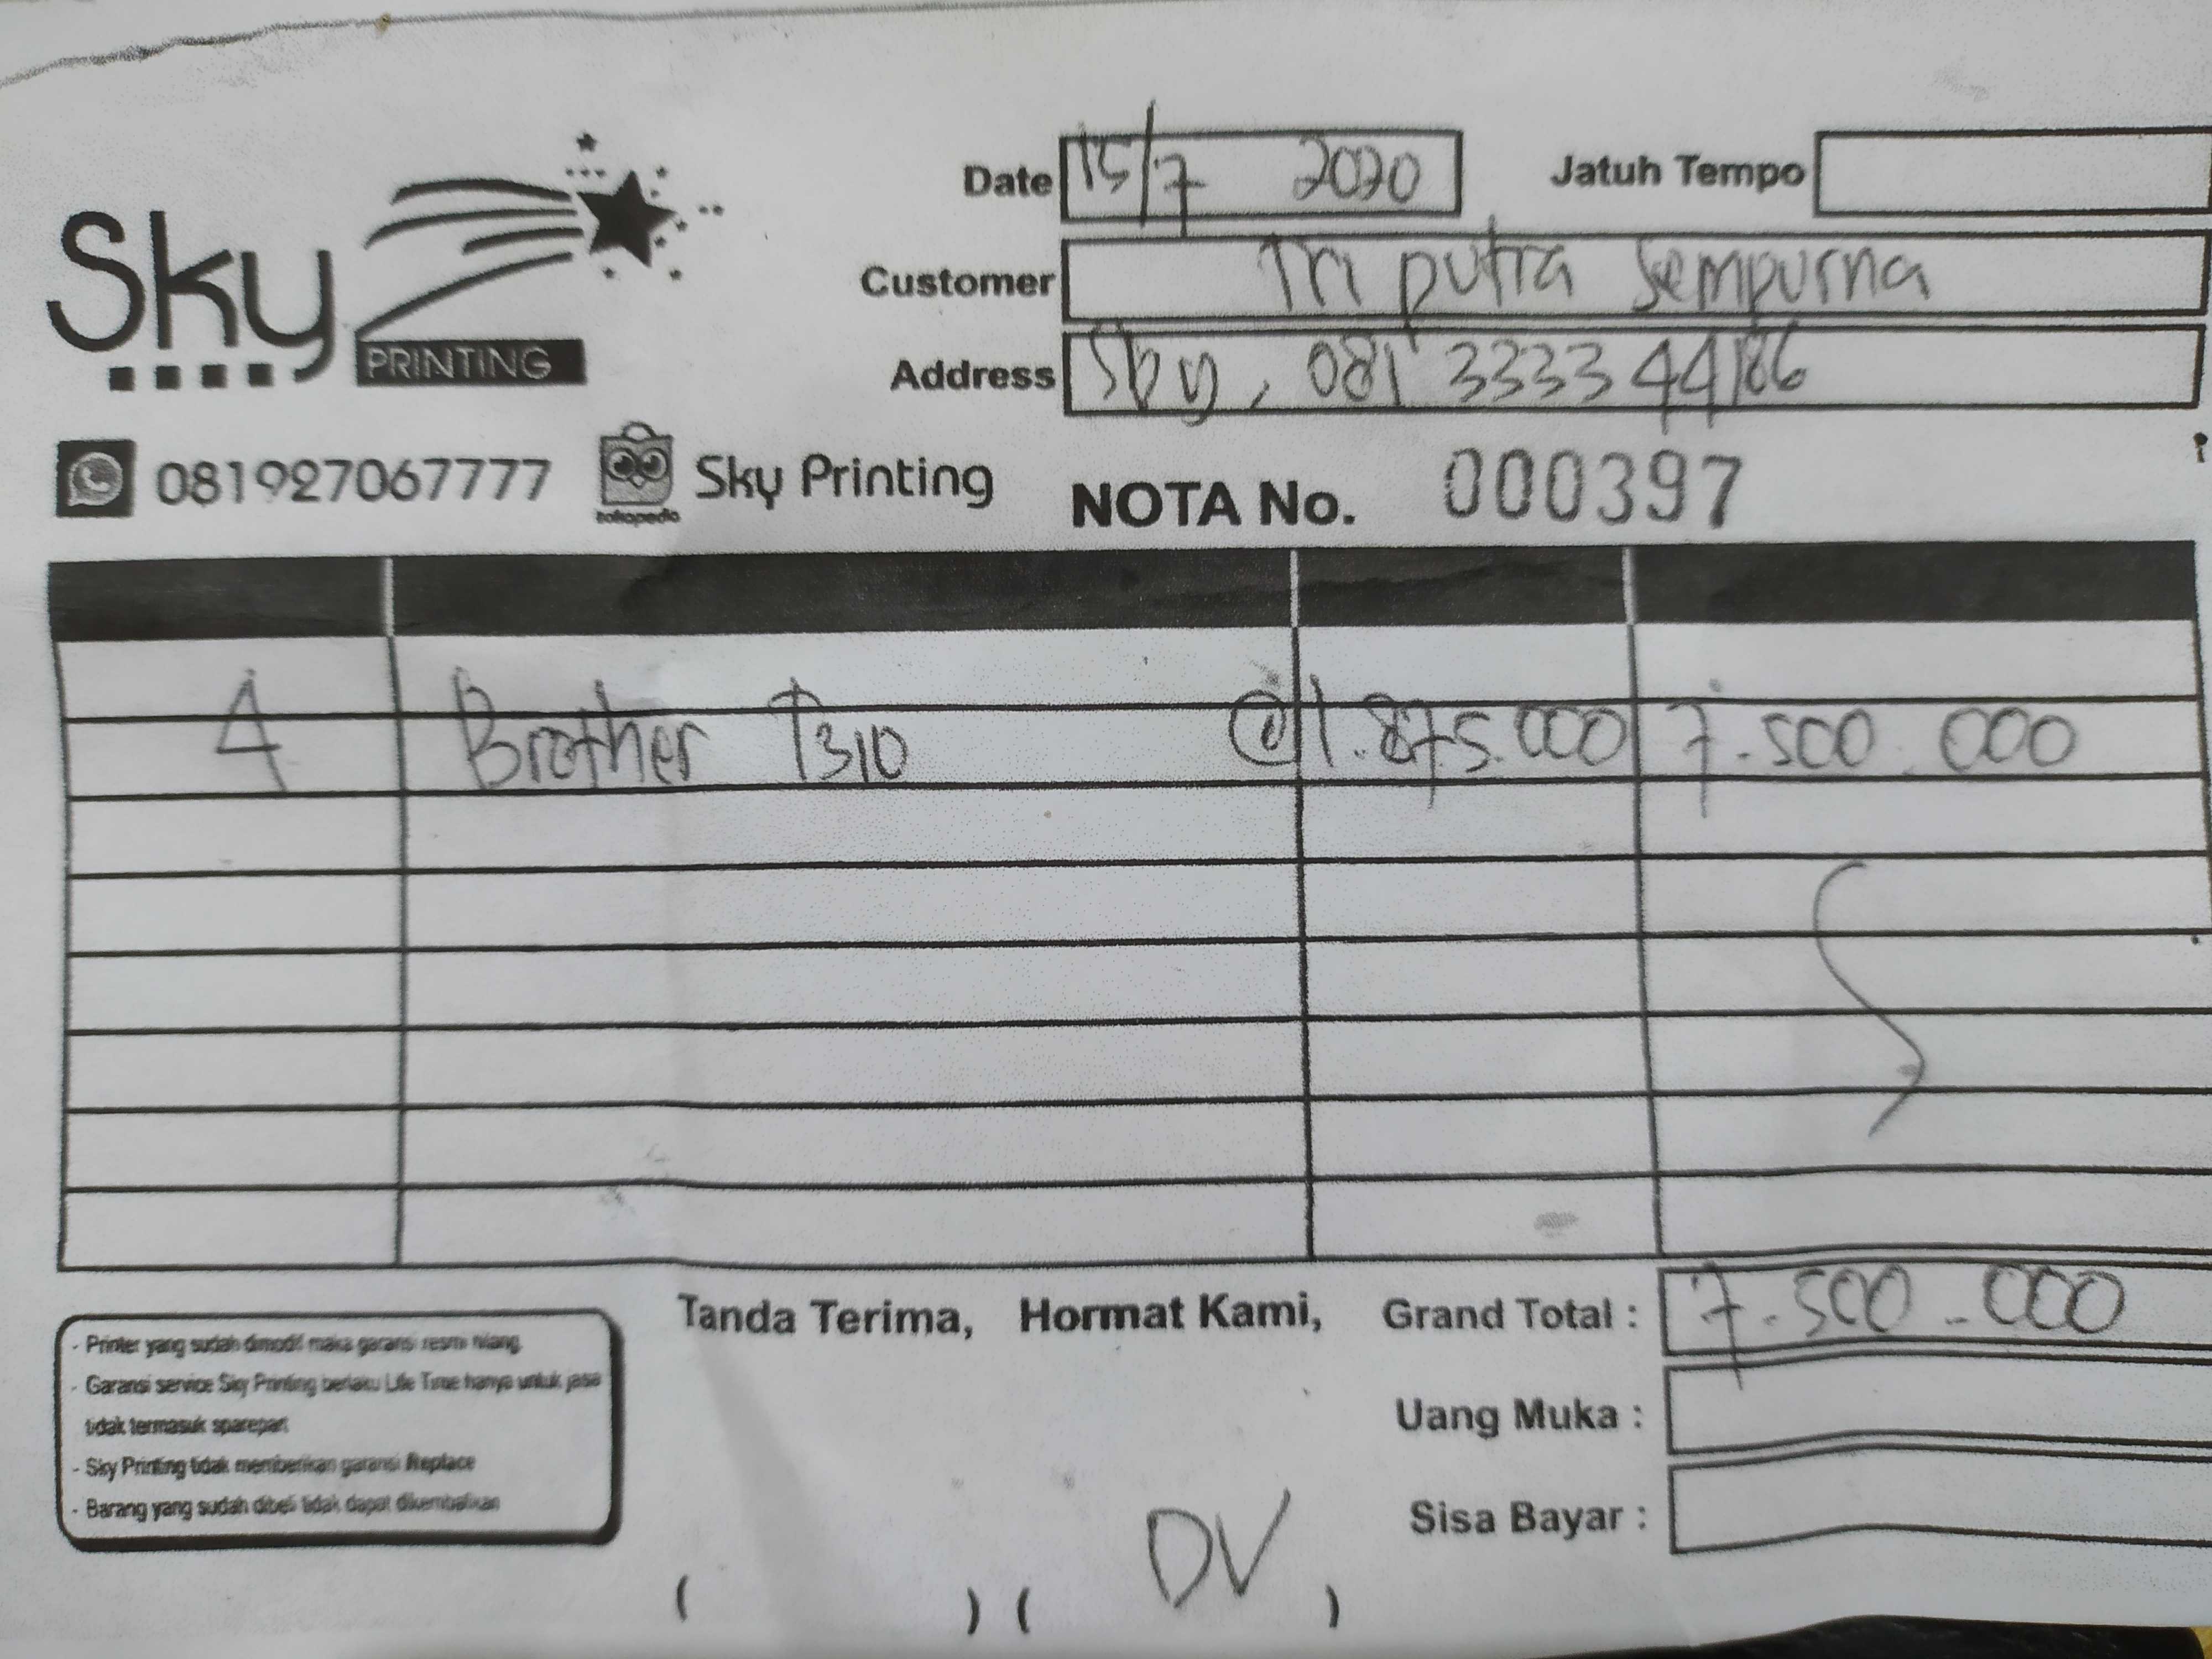 Sky
PRINTING
Date 15/7 2020 Jatuh Tempo
Customer Tri putra Sempurna
Address Sby, 081 3333 44186
081927067777 tokopedia Sky Printing NOTA No. 000397
4 Brother T310 @ 1.875.000 7.500.000
Tanda Terima, Hormat Kami, Grand Total : 7.500.000
Uang Muka :
Sisa Bayar :
- Printer yang sudah dimodif maka garansi resmi hilang
- Garansi service Sky Printing berlaku Life Time hanya untuk jasa
tidak termasuk sparepart
- Sky Printing tidak memberikan garansi Replace
- Barang yang sudah dibeli tidak dapat dikembalikan
( ) ( DV )